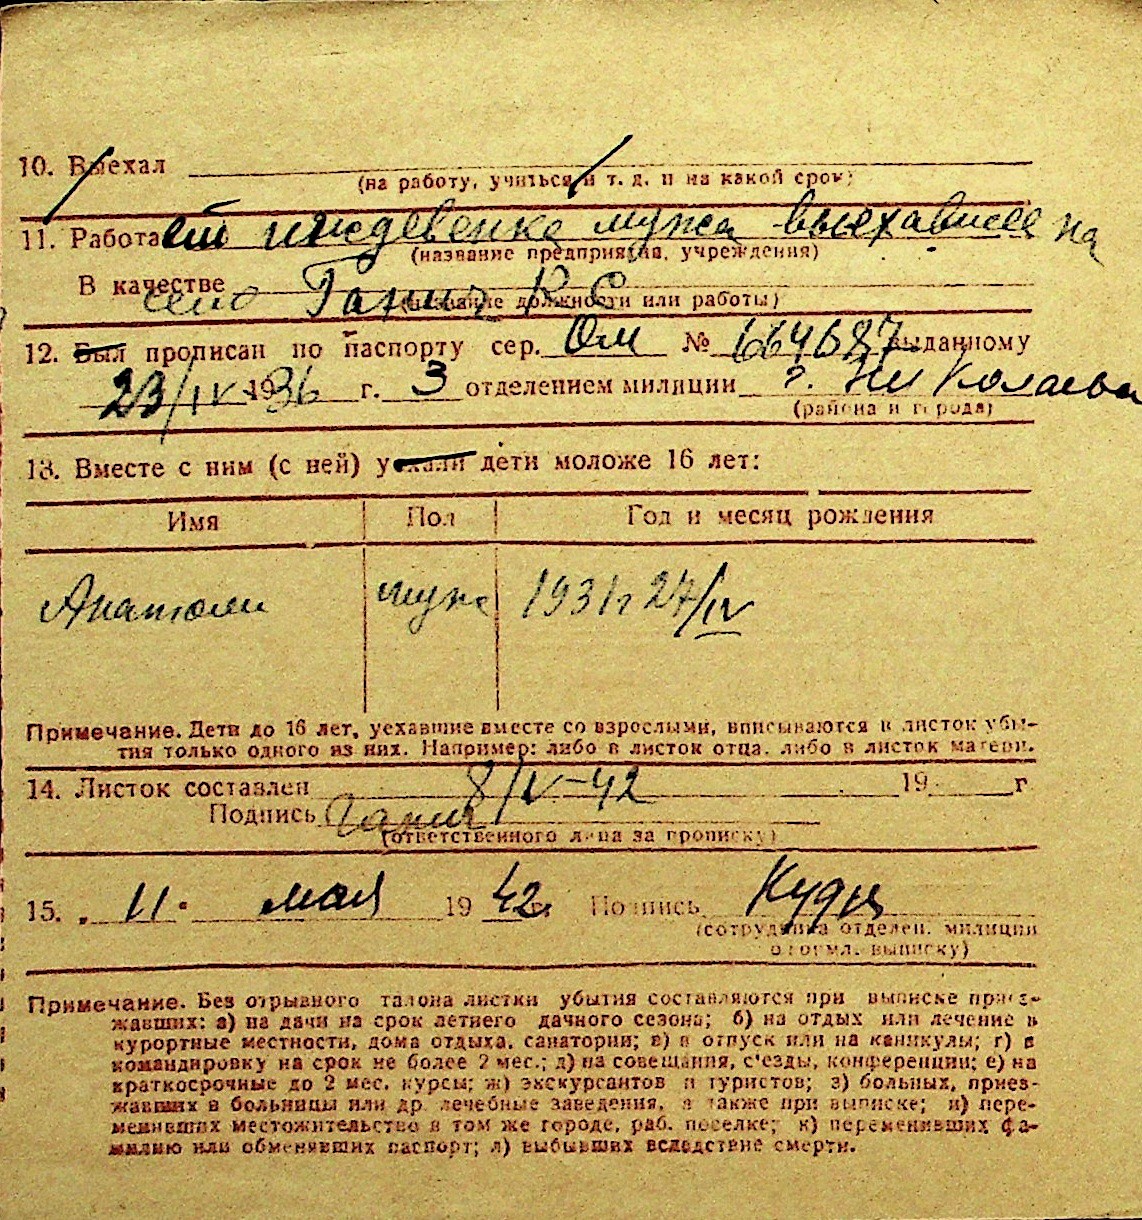 10. Выехал
(на работу, учиться и т. д. и на какой срок)
11. Работает иждевенка мужа выехавшее на
(название предприятия, учреждения)
В качестве село Ганич К С
(название должности или работы)
12. Был прописан по паспорту сер. Ом № 664687 выданному
23/IV-1936 г. 3 отделением милиции г. Николаева
(района и города)
13. Вместе с ним (с ней) уехали дети моложе 16 лет:
Имя Пол Год и месяц рождения
Анатоли муж 1931г 27/IV
Примечание. Дети до 16 лет, уехавшие вместе со взрослыми, вписываются в листок убы-
тия только одного из них. Например: либо в листок отца, либо в листок матери.
14. Листок составлен 8/V-42 19 г
Подпись Ганич
(ответственного лица за прописку)
15. „11" мая 1942 г. Подпись
(сотрудника отделен. милиции
оформл. выписку)
Примечание. Без отрывного талона листки убытия составляются при выписке приез-
жавших: а) на дачи на срок летнего дачного сезона; б) на отдых или лечение в
курортные местности, дома отдыха, санатории; в) в отпуск или на каникулы; г) в
командировку на срок не более 2 мес.; д) на совещания, с'езды, конференции; е) на
краткосрочные до 2 мес. курсы; ж) экскурсантов и туристов; з) больных, приез-
жавших в больницы или др. лечебные заведения, а также при выписке; и) пере-
менивших местожительство в том же городе, раб. поселке; к) переменивших фа-
милию или обменявших паспорт; л) выбывших вследствие смерти.